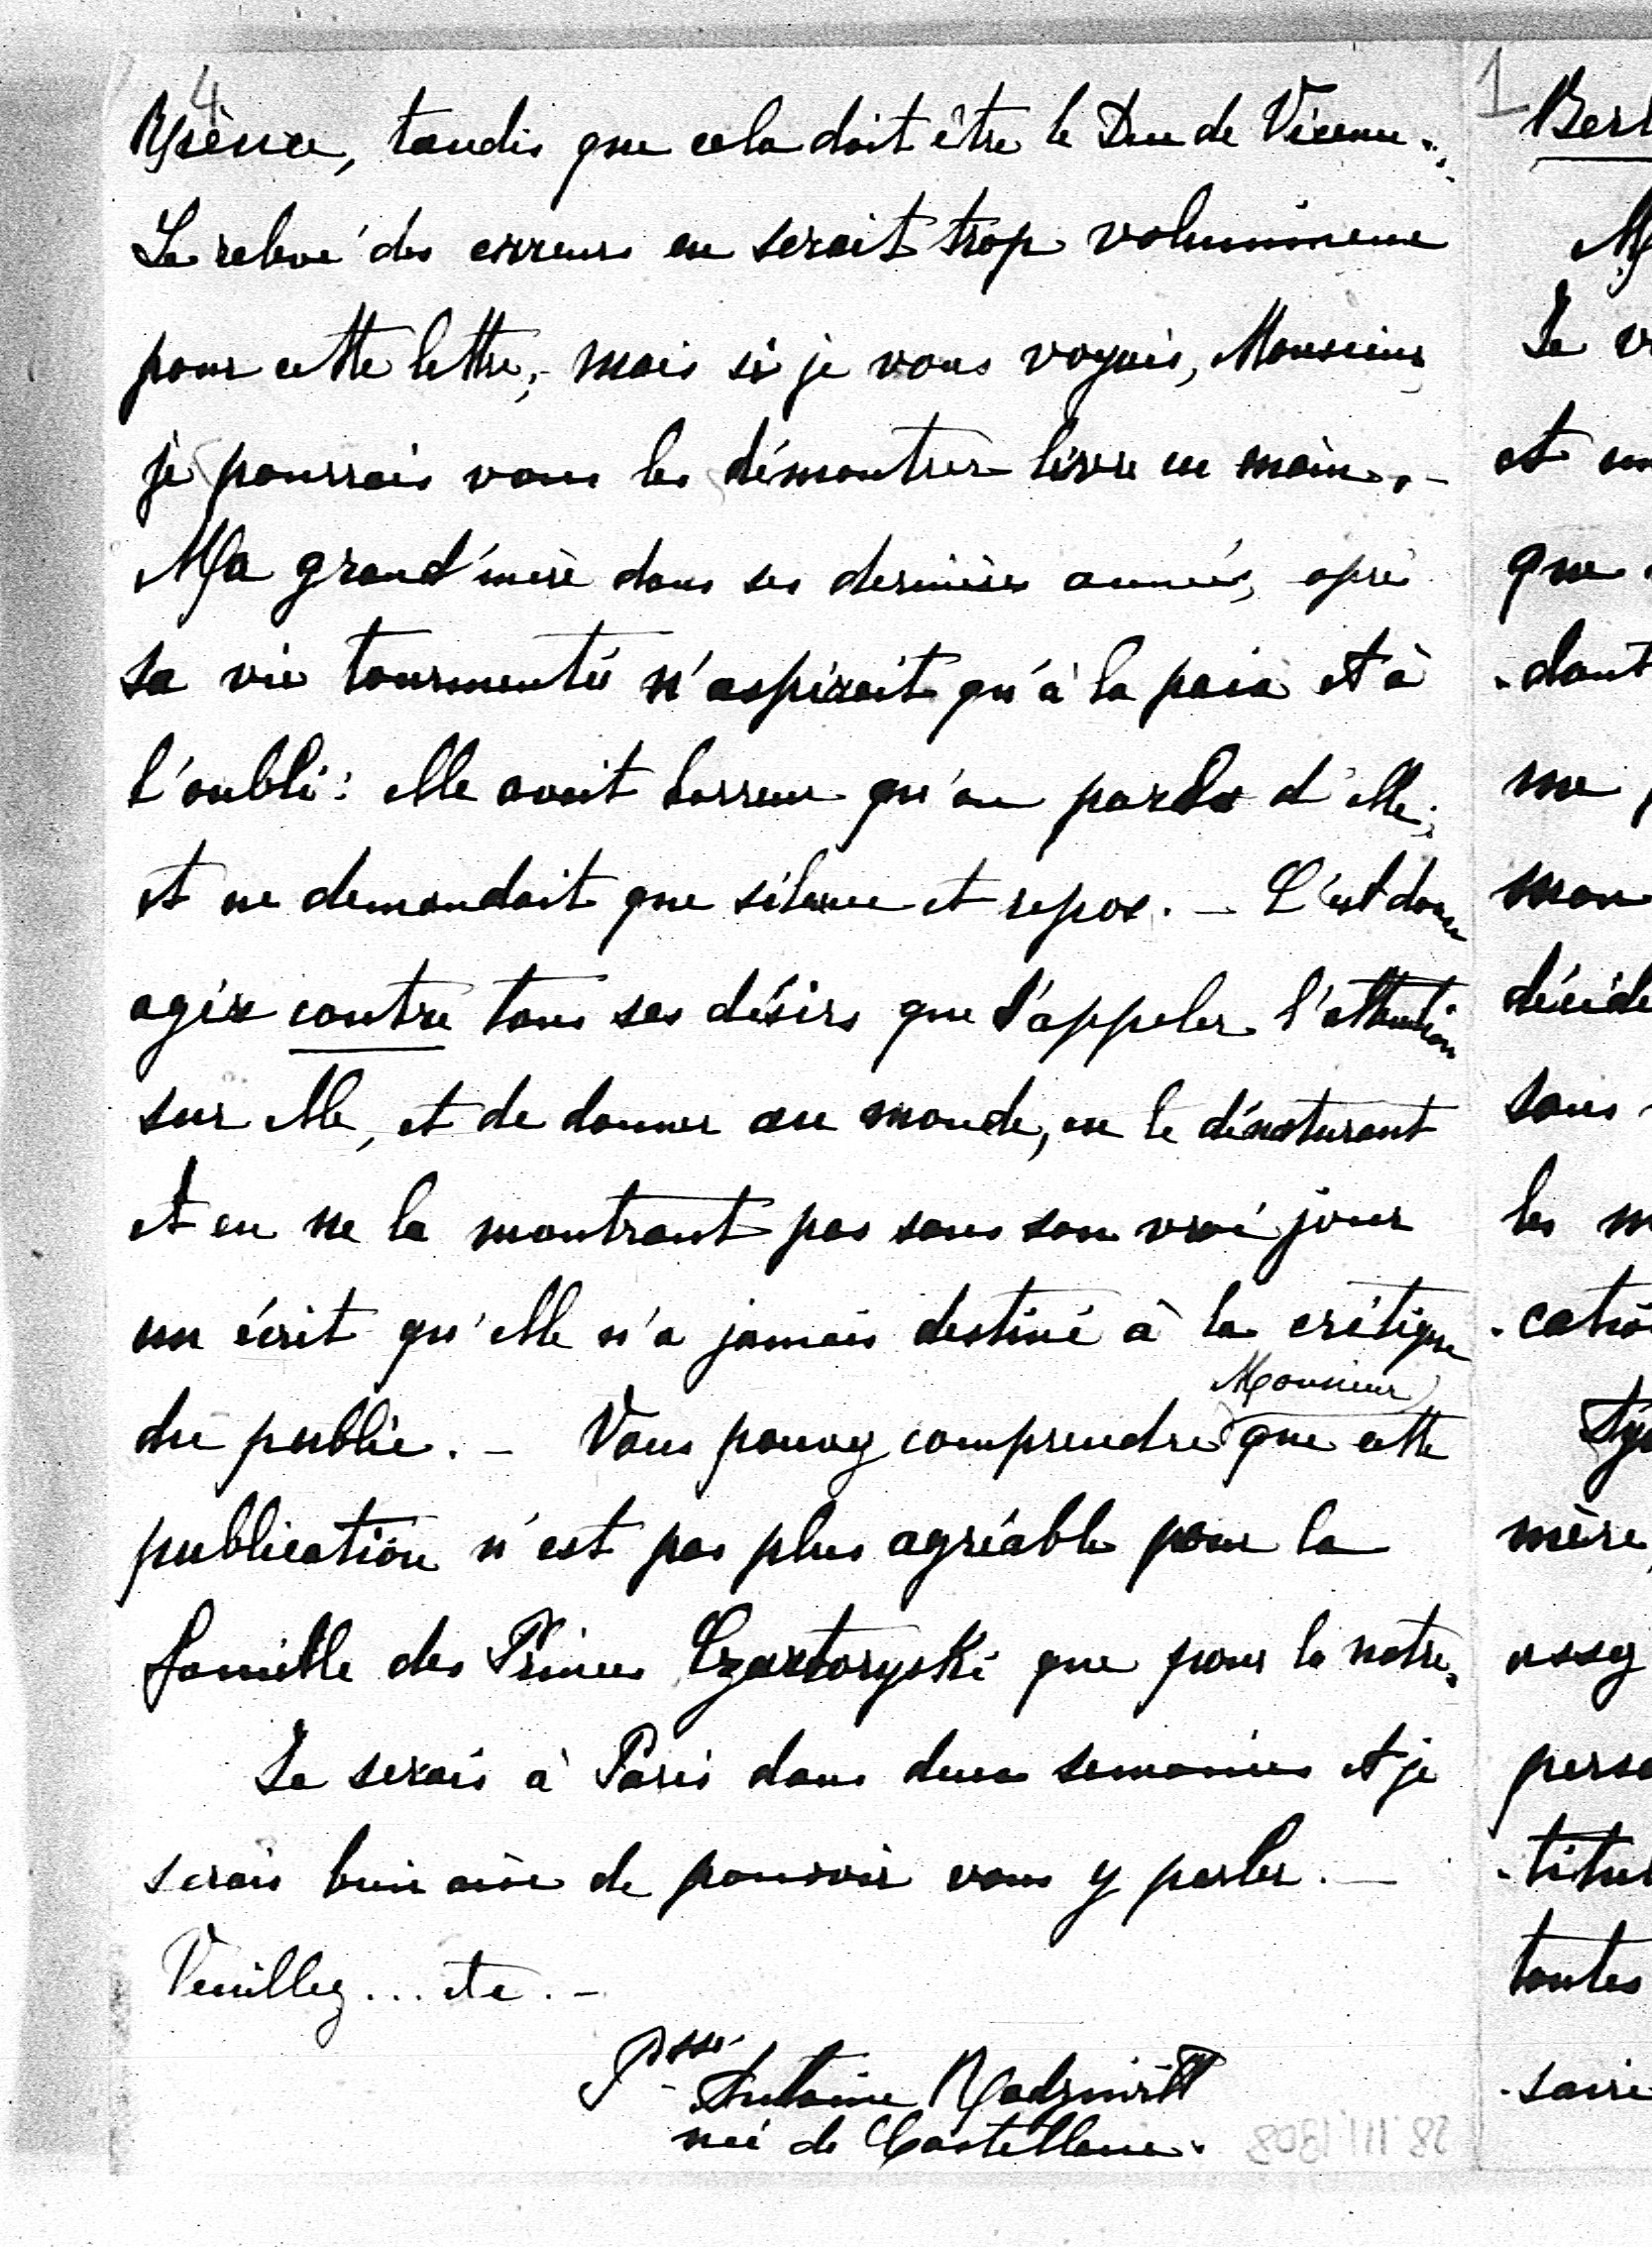 4
Byséna, tandis que cela doit être le Duc de Vicence.
Le relevé des erreurs en serait trop volumineux
pour cette lettre, - mais si je vous voyais, Monsieur,
je pourrais vous les démontrer livre en main. -
Ma grand'mère dans ses dernières années, après
sa vie tourmentée n'aspirait qu'à la paix et à
l'oubli : elle avait horreur qu'on parla d'elle,
et ne demandait que silence et repos. - C'est donc
agir contre tous ses désirs que d'appeler l'attention
sur elle, et de donner au monde, en le dénaturant
et en ne le montrant pas sous son vrai jour
un écrit qu'elle n'a jamais destiné à la critique
du public. - Vous pouvez comprendre Monsieur que cette
publication n'est pas plus agréable pour la
famille des Princes Czartoryski que pour la notre.
Je serais à Paris dans deux semaines et je
serais bien aise de pouvoir vous y parler. -
Veuillez ... etc. -
Psse Antoine Radziwill
née de Castellane.
28 III 1908
1
Berl
M
Je v
et un
que
-dont
me p
mon
décide
sans
les m
-catio
mère,
assez
perso
-titul
toutes
-saire